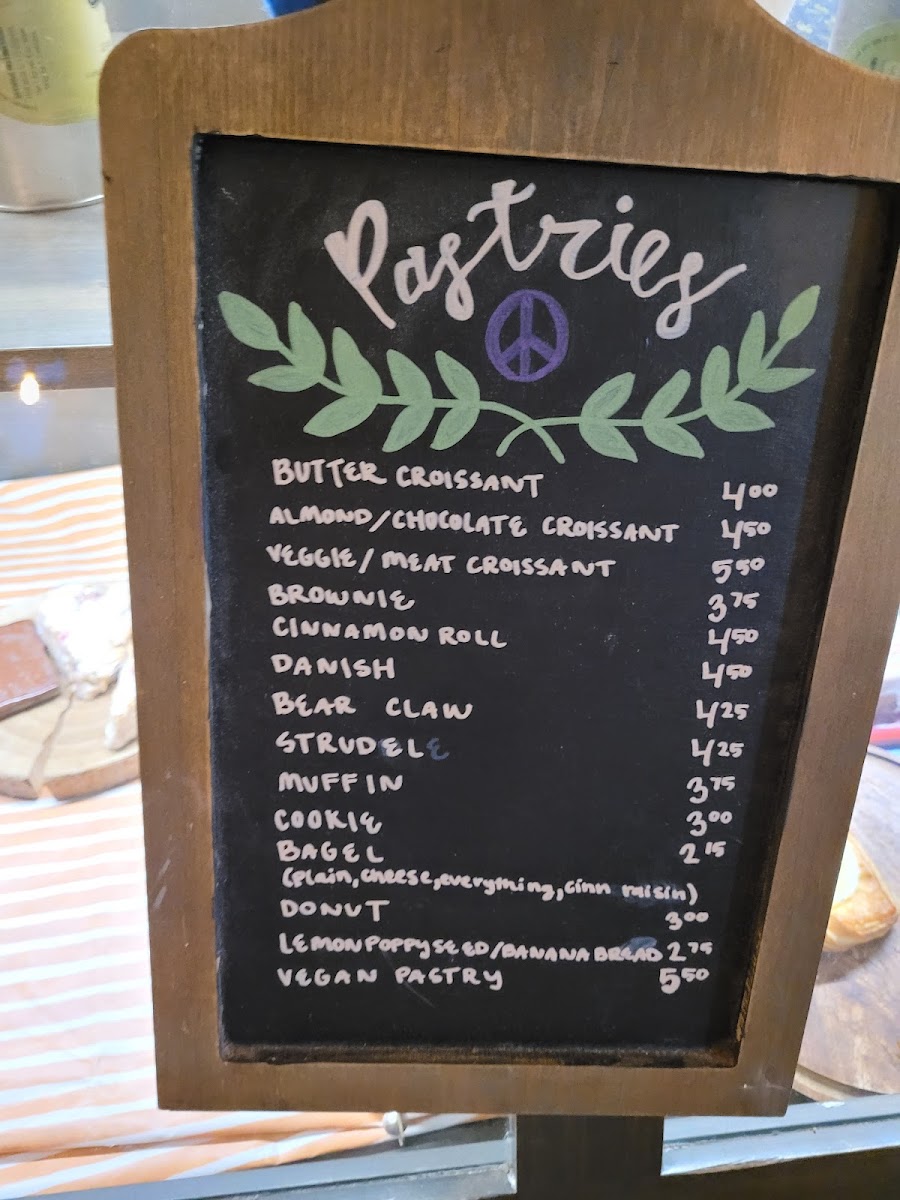 Pastries
BUTTER CROISSANT 4.00
ALMOND/CHOCOLATE CROISSANT 4.50
VEGGIE/MEAT CROISSANT 5.50
BROWNIE 3.75
CINNAMON ROLL 4.50
DANISH 4.50
BEAR CLAW 4.25
STRUDEL 4.25
MUFFIN 3.75
COOKIE 3.00
BAGEL 2.15
(plain, cheese, everything, cinn raisin)
DONUT 3.00
LEMON POPPYSEED/BANANA BREAD 2.75
VEGAN PASTRY 5.50